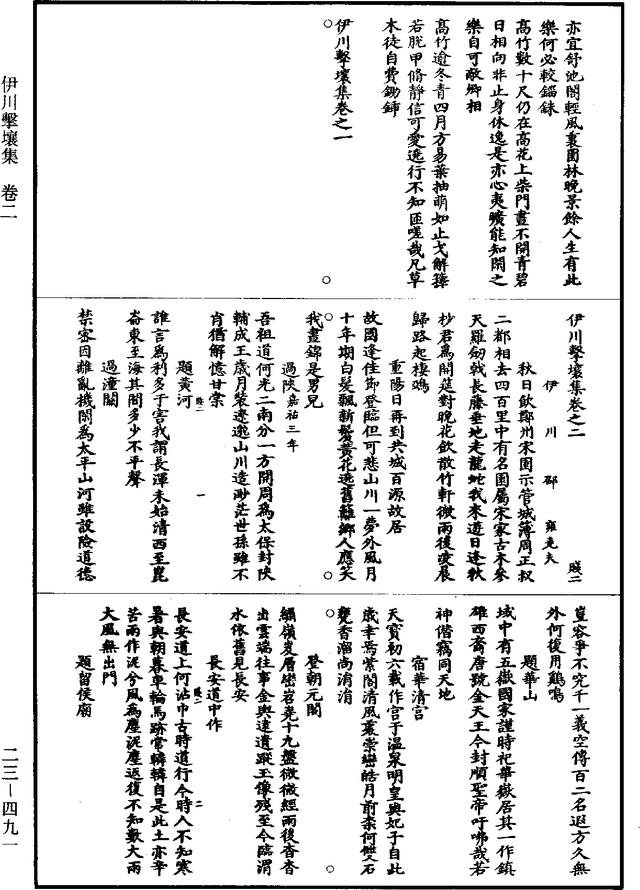 伊川擊壤集 卷二
二三—四九一
亦宜舒池閣輕風裏園林晚景餘人生有此
樂何必較錙銖
高竹數十尺仍在高花上柴門晝不開青碧
日相向非止身休逸是亦心夷曠能知閑之
樂自可敵卿相
高竹逾冬青四月方易葉抽萌如止戈解籜
若脫甲脩靜信可愛遶行不知匝嗟哉凡草
木徒自費鋤鍤
伊川擊壤集卷之一
伊川擊壤集卷之二 賤二
伊川邵雍堯夫
秋日飲鄭州宋園示管城簿周正叔
二都相去四百里中有名園屬宋家古木參
天羅劒戟長藤垂地走龍蛇我來遊日逢秋
杪君爲開筵對晚花飲散竹軒微雨後凌晨
歸路起棲鴉
重陽日再到共城百源故居
故國逢佳節登臨但可悲山川一夢外風月
十年期白髮飄新鬢黃花遶舊籬鄉人應笑
我晝錦是男兒
過陝嘉祐三年
吾祖道何光二南分一方開周爲太保封陝
輔成王歲月裝遼邈山川造渺茫世孫雖不
肖猶解憶甘棠
題黃河
賤二 一
誰言爲利多于害我謂長渾未始清西至崑
崙東至海其間多少不平聲
過潼關
禁密因離亂機閑爲太平山河雖設險道德
豈容爭不究千一義空傳百二名遐方久無
外何復用鷄鳴
題華山
域中有五嶽國家謹時祀華嶽居其一作鎮
雄西裔唐號金天王今封順聖帝吁咈哉若
神僭竊同天地
宿華清宮
天寶初六載作宮于溫泉明皇與妃子自此
歲幸焉紫閣清風裏崇巒皓月前柰何雙石
甕香溜尚涓涓
登朝元閣
繡嶺岌層巒岩堯十九盤微微經雨後杳杳
出雲端往事金輿遠遺蹤玉像殘至今臨渭
水依舊見長安
長安道中作
賤二 二
長安道上何沾巾古時道行今時人不知寒
暑與朝暮車輪馬跡常轔轔自是此土亦辛
苦雨作泥兮風爲塵泥塵返復不知數大雨
大風無出門
題留侯廟